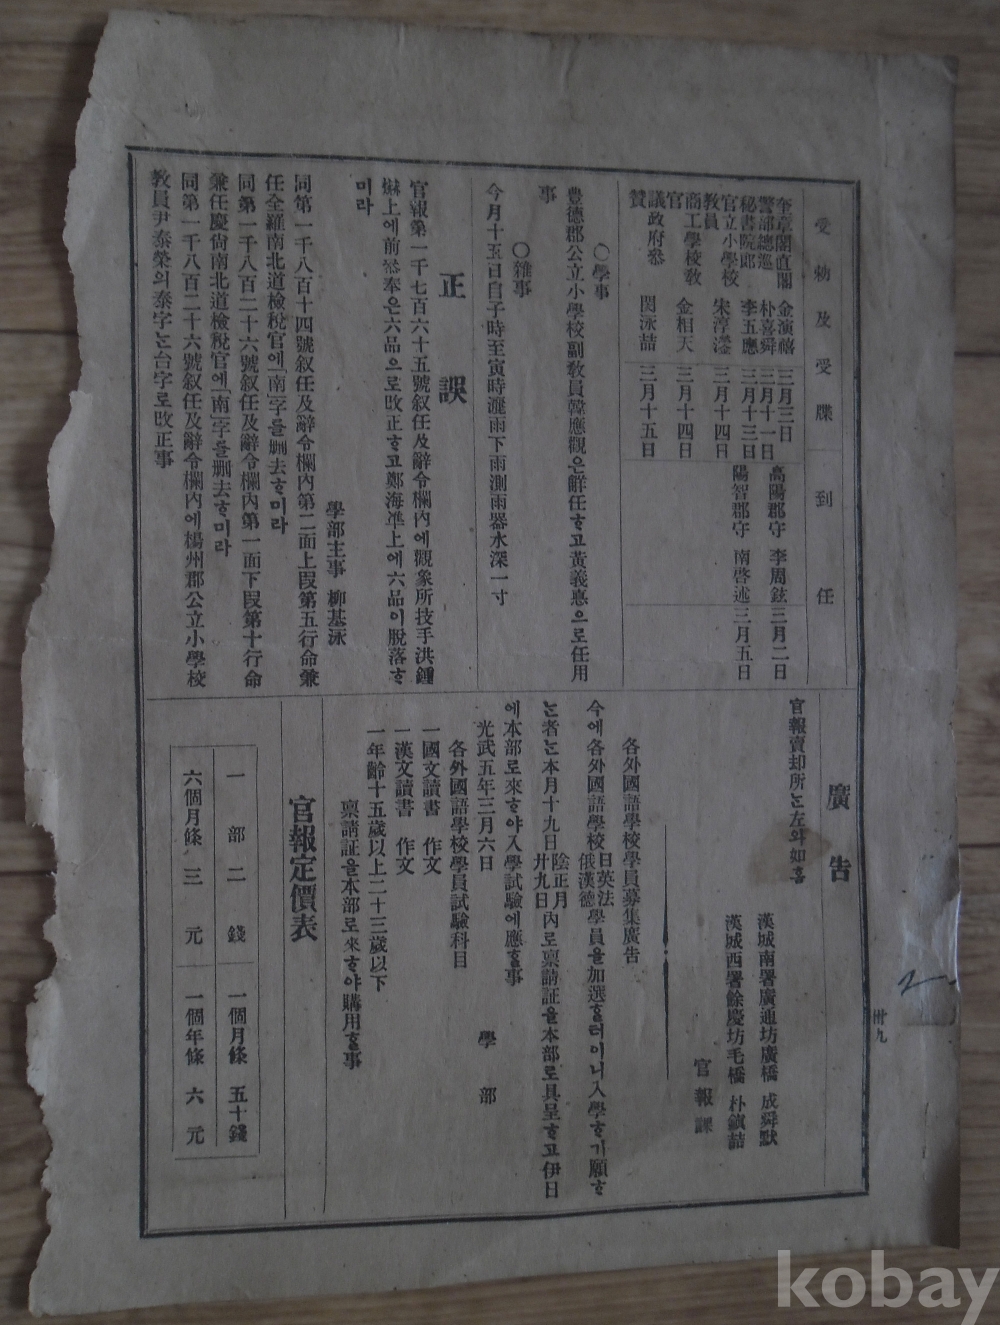 受勅及受牒
到任
奎章閣直閣 金演禧 三月三日
警部總巡 朴喜舜 三月十一日
秘書院郎 李五應 三月十三日
官立小學校教員 宋淳瀅 三月十四日
商工學校教官 金相天 三月十四日
議政府叅贊 閔泳喆 三月十五日
高陽郡守 李周鉉 三月二日
陽智郡守 南啓述 三月五日
○學事
豊德郡公立小學校副教員韓應觀은觧任ᄒᆞ고黃義悳으로任用
事
○雜事
今月十五日自子時至寅時灑雨下雨測雨器水深一寸
正誤
官報第一千七百六十五號叙任及辭令欄內에觀象所技手洪鍾
爀上에前叅奉은六品으로改正ᄒᆞ고鄭海準上에六品이脫落ᄒᆞ
미라
學部主事 柳基泳
同第一千八百十四號叙任及辭令欄內第二面上段第五行命兼
任全羅南北道檢稅官에「南」字를刪去ᄒᆞ미라
同第一千八百二十六號叙任及辭令欄內第一面下段第十行命
兼任慶尙南北道檢稅官에「南」字를刪去ᄒᆞ미라
同第一千八百二十六號叙任及辭令欄內에楊州郡公立小學校
教員尹泰榮의泰字ᄂᆞᆫ台字로改正事
廣告
官報賣却所ᄂᆞᆫ左와如홈
漢城南署廣通坊廣橋 成舜默
漢城西署餘慶坊毛橋 朴鎭喆
官報課
各外國語學校學員募集廣告
今에各外國語學校日英法俄漢德學員을加選ᄒᆞ터이니入學ᄒᆞ기願ᄒᆞ
ᄂᆞᆫ者ᄂᆞᆫ本月十九日陰正月廿九日內로稟請証을本部로具呈ᄒᆞ고伊日
에本部로來ᄒᆞ야入學試驗에應ᄒᆞᆯ事
光武五年三月六日 學部
各外國語學校學員試驗科目
一國文讀書 作文
一漢文讀書 作文
一年齡十五歲以上二十三歲以下
稟請証을本部로來ᄒᆞ야購用ᄒᆞᆯ事
官報定價表
一部二錢 一個月條 五十錢
六個月條 三元 一個年條 六元
卅九
kobay